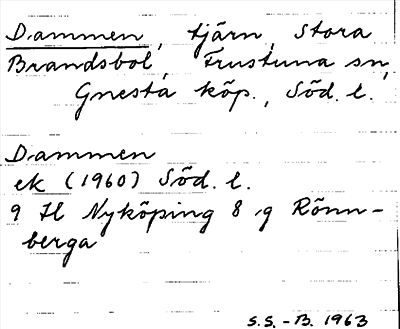 Dammen, tjärn, Stora
Brandsbol, Frustuna sn,
Gnesta köp., Söd. l.
Dammen
ek (1960) Söd. l.
9 H Nyköping 8 g Rönn-
berga
S.S.-B. 1963